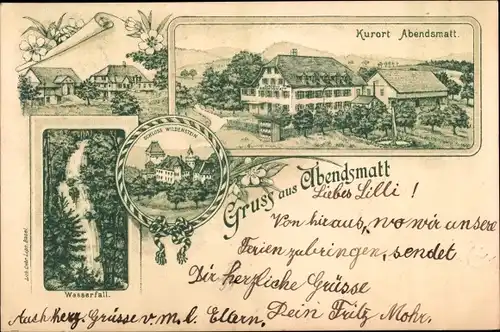 Kurort Abendsmatt.
SCHLOSS WILDENSTEIN
Gruss aus Abendsmatt
Wasserfall.
Liebes Lilli!
Von hiraus, wo wir unsere
Ferien zubringen, sendet
Dir herzliche Grüsse
Dein Fritz Mohr.
Auch herz. Grüsse v. m. l. Eltern.